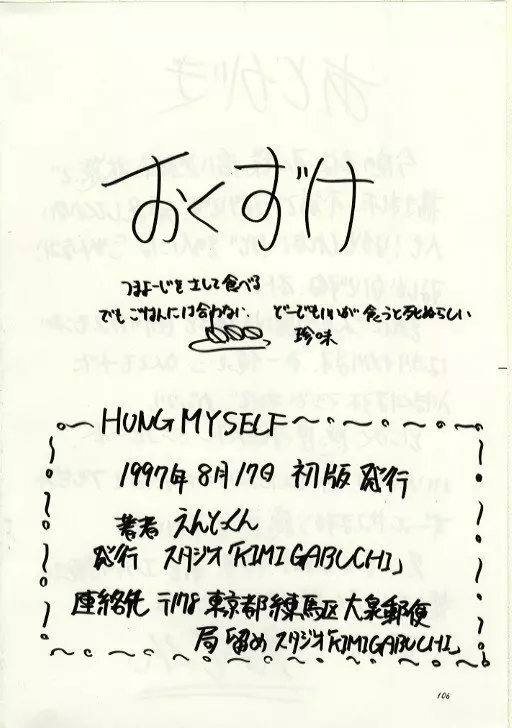 おくずけ
つまよーじをさして食べる
でもごはんには合わない どーでもいいが 食うと死ぬらしい
珍味
HUNG MYSELF
1997年8月17日 初版発行
著者 えんとっくん
発行 スタジオ「KIMIGABUCHI」
連絡先 〒178 東京都練馬区大泉郵便
局留め スタジオ「KIMIGABUCHI」
106